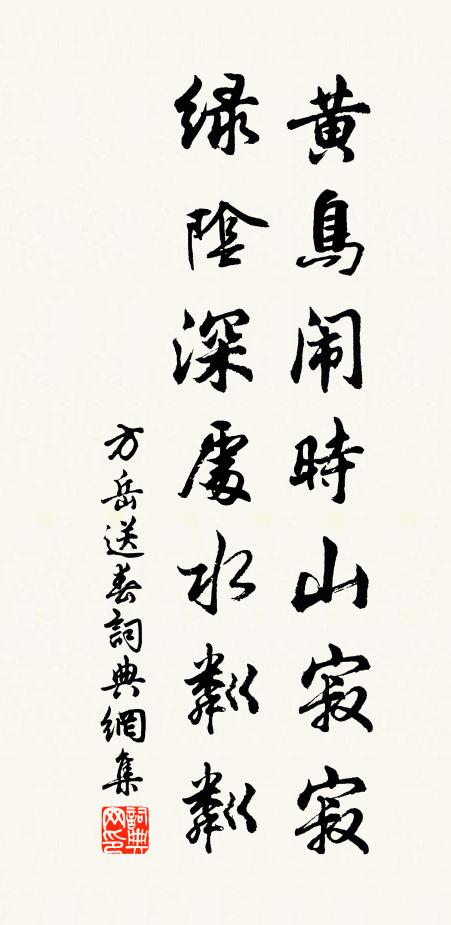 黄鳥闹時山寂寂
緑陰深處水粼粼
方岳送春詞典網集
詞典网印